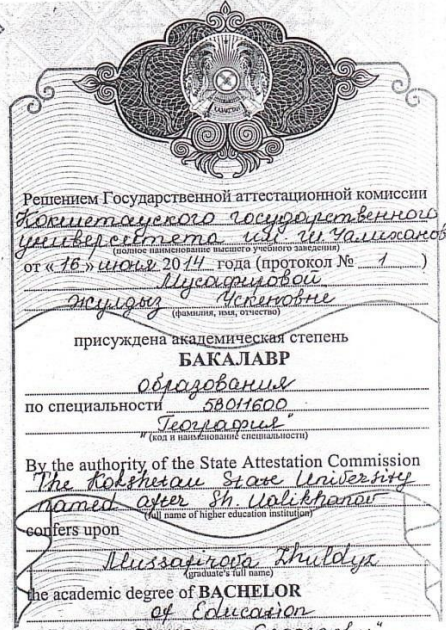 Решением Государственной аттестационной комиссии
Кокшетауского государственного
университета им Ш Уалиханова
(полное наименование высшего учебного заведения)
от «16» июня 2014 года (протокол № 1 )
Мусафировой
Жулдыз Ускеновне
(фамилия, имя, отчество)
присуждена академическая степень
БАКАЛАВР
образования
по специальности 5В011600
"География"
(код и наименование специальности)
By the authority of the State Attestation Commission
The Kokshetau State University
named after Sh. Ualikhanov
(full name of higher education institution)
confers upon
Mussafirova Zhuldyz
(graduate's full name)
the academic degree of BACHELOR
of Education